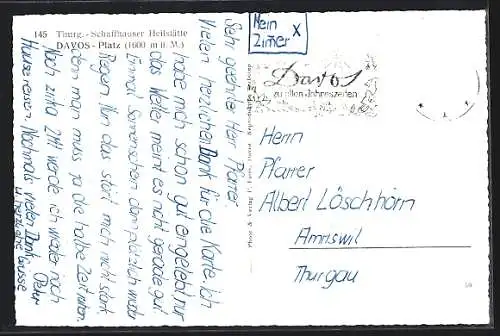 145 Thurg.-Schaffhauser Heilstätte
DAVOS-Platz (1600 m ü. M.)
Mein X
Zimmer
Davos
zu allen Jahreszeiten
Sehr geehrter Herr Pfarrer
Vielen herzlichen Dank für die Karte. Ich
habe mich schon gut eingelebt, nur
das Wetter meint es nicht gerade gut
Einmal Sonnenschein dann plötzlich wieder
Regen. Nun das stört mich nicht stark
denn man muss ja die halbe Zeit ruhen.
Noch zirka 2 Mt werde ich wieder nach
Hause reisen. Nochmals vielen Dank
u. herzliche Grüsse
Peter
Herrn
Pfarrer
Albert Löschhorn
Amriswil
Thurgau